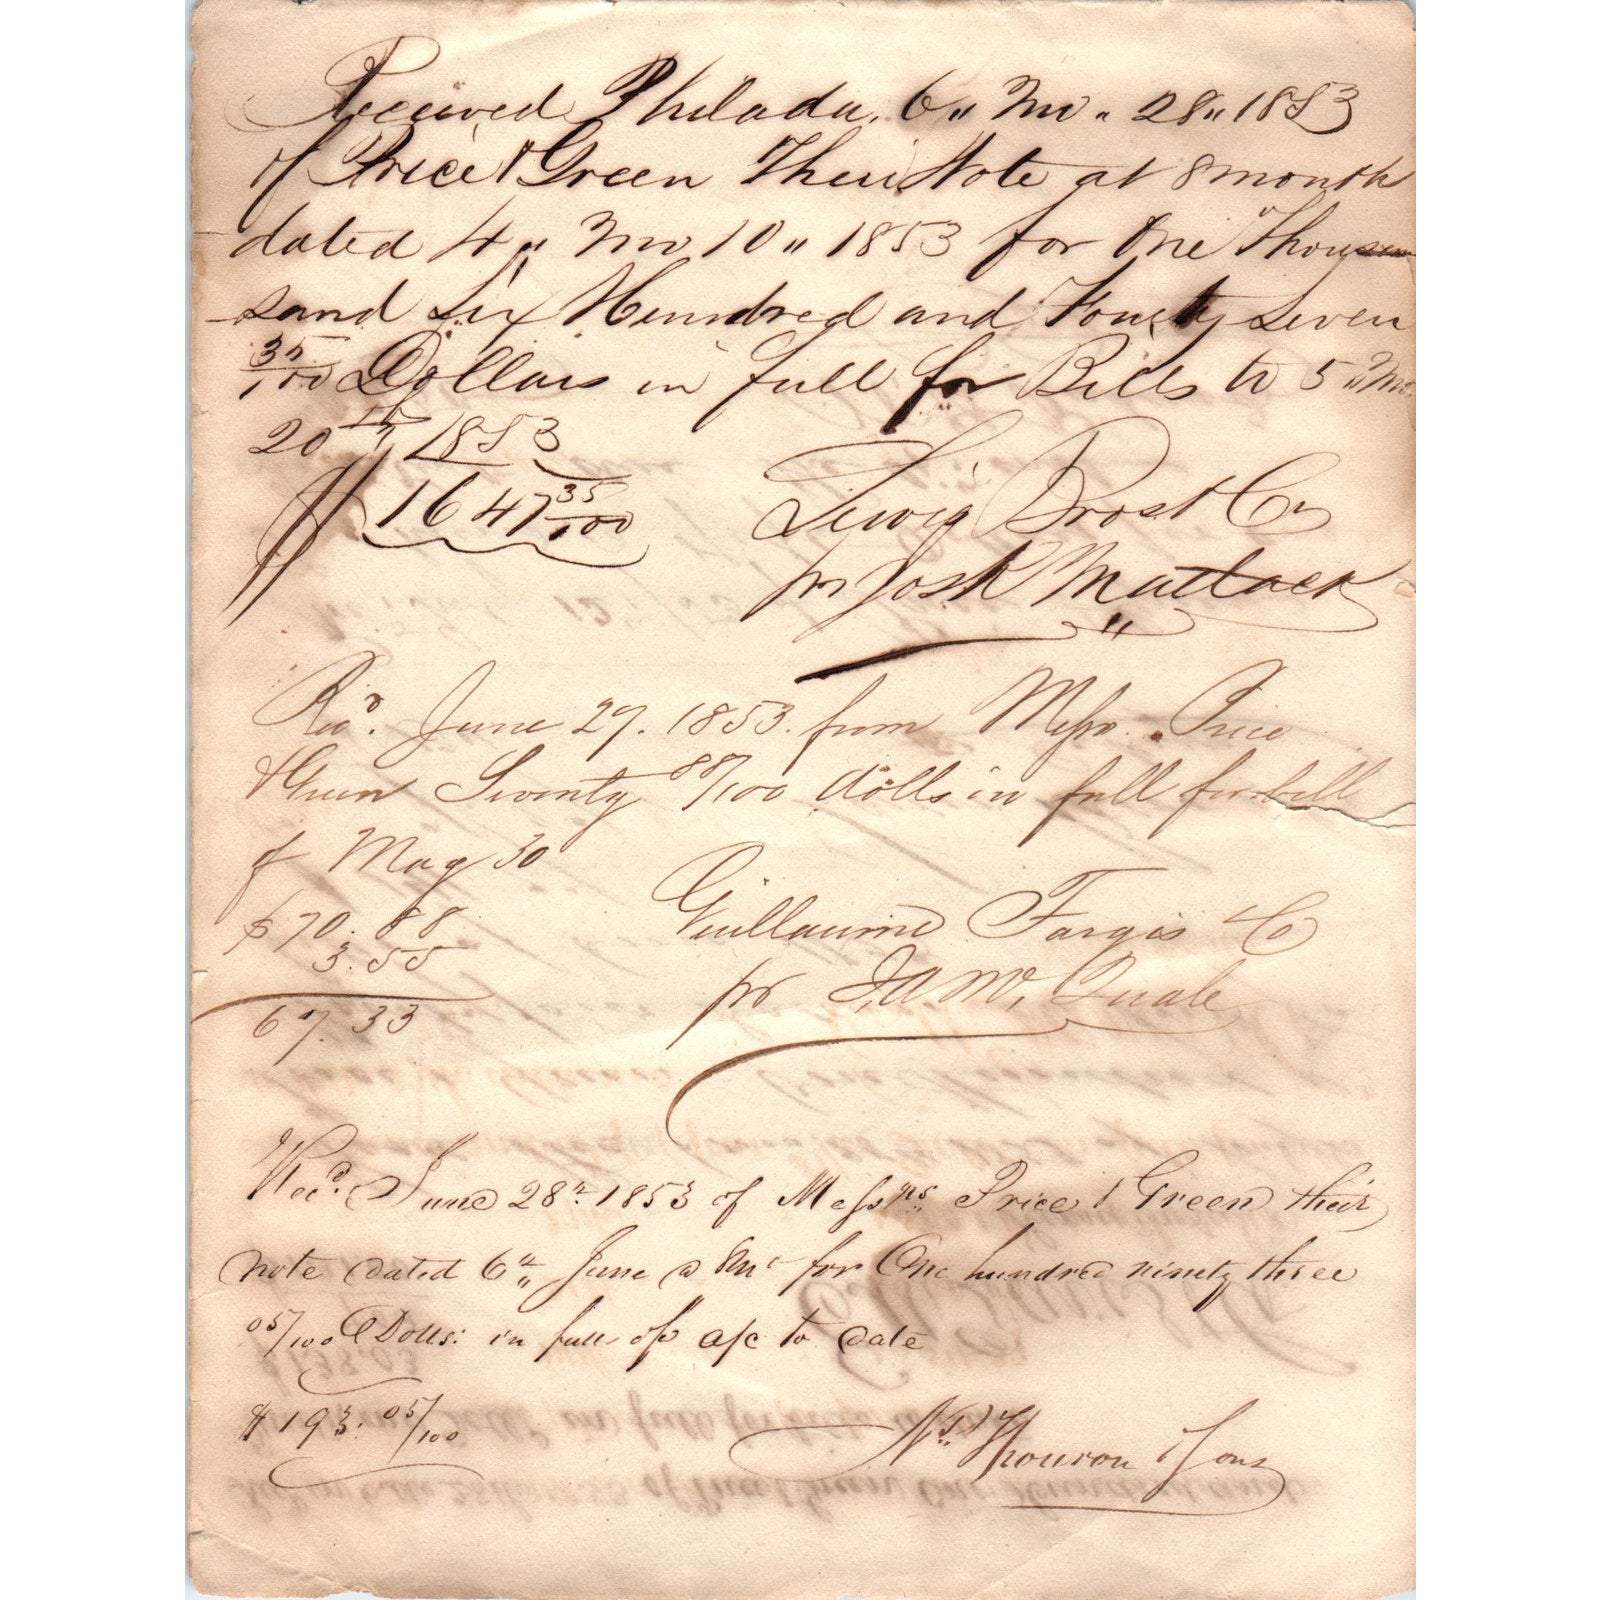 Received Philada. 6" Mo " 28" 1853
of Price & Green Their Note at 8 month
dated 4" Mo 10" 1853 for One Thou
sand Six Hundred and Fourty Seven
35/100 Dollars in full for Bills to 5" Mo
20th 1853
$ 1647 35/100
Lewis Brost & Co
pr Josh Matlack
Recd. June 29. 1853. from Messrs. Price
& Green Seventy 88/100 dolls in full for bill
of May 30
$70.88
3.55
67.33
Guillaume Fargis & Co
pr J.A. Mc. Quale
Recd. June 28th 1853 of Messrs Price & Green their
note dated 6th June @ 8 mo for One hundred ninety three
05/100 Dolls: in full of a/c to date
$193.05/100
Nd Thouron & Sons